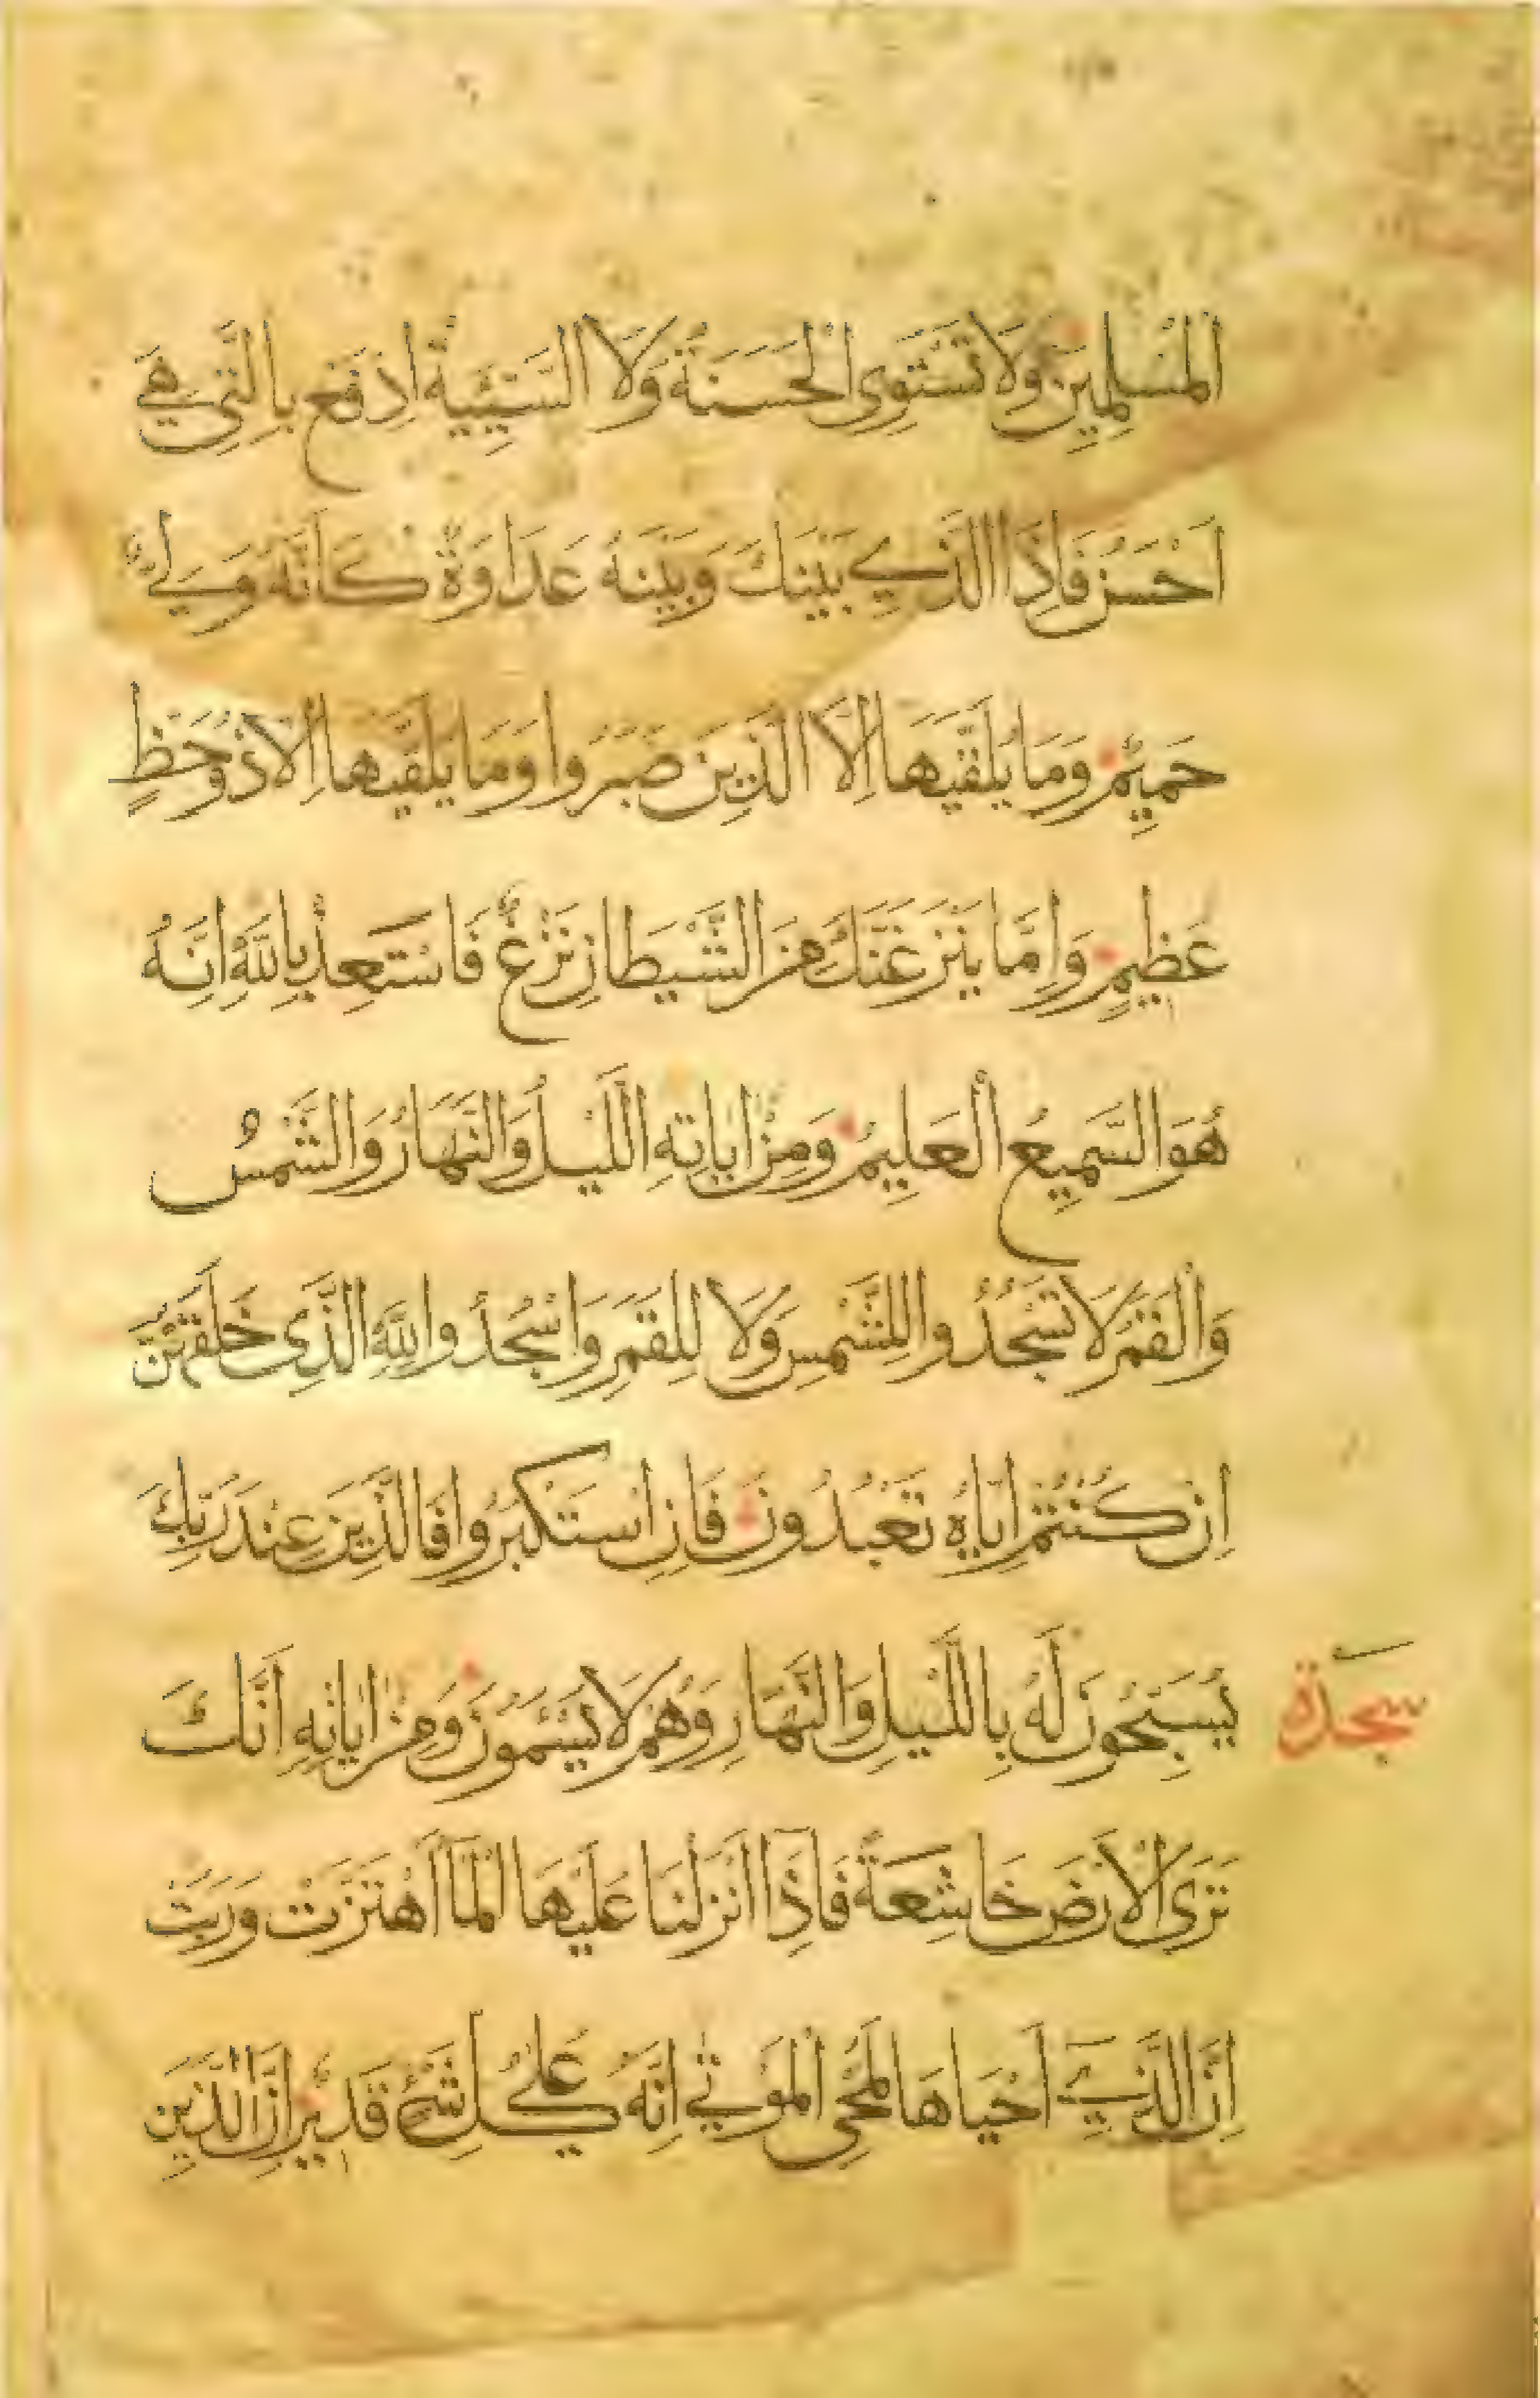 الْمُسْلِمِينَ وَلَا تَسْتَوِى الْحَسَنَةُ وَلَا السَّيِّئَةُ اِدْفَعْ بِالَّتِى هِىَ
اَحْسَنُ فَاِذَا الَّذِى بَيْنَكَ وَبَيْنَهُ عَدَاوَةٌ كَاَنَّهُ وَلِىٌّ
حَمِيمٌ وَمَا يُلَقّٰيهَا اِلَّا الَّذِينَ صَبَرُوا وَمَا يُلَقّٰيهَا اِلَّا ذُو حَظٍّ
عَظِيمٍ وَاِمَّا يَنْزَغَنَّكَ مِنَ الشَّيْطَانِ نَزْغٌ فَاسْتَعِذْ بِاللّٰهِ اِنَّهُ
هُوَ السَّمِيعُ الْعَلِيمُ وَمِنْ اٰيَاتِهِ اللَّيْلُ وَالنَّهَارُ وَالشَّمْسُ
وَالْقَمَرُ لَا تَسْجُدُوا لِلشَّمْسِ وَلَا لِلْقَمَرِ وَاسْجُدُوا لِلّٰهِ الَّذِى خَلَقَهُنَّ
اِنْ كُنْتُمْ اِيَّاهُ تَعْبُدُونَ فَاِنِ اسْتَكْبَرُوا فَالَّذِينَ عِنْدَ رَبِّكَ
يُسَبِّحُونَ لَهُ بِاللَّيْلِ وَالنَّهَارِ وَهُمْ لَا يَسْئَمُونَ وَمِنْ اٰيَاتِهِ اَنَّكَ
سجدة
تَرَى الْاَرْضَ خَاشِعَةً فَاِذَا اَنْزَلْنَا عَلَيْهَا الْمَاَ اهْتَزَّتْ وَرَبَتْ
اِنَّ الَّذِى اَحْيَاهَا لَمُحْىِ الْمَوْتٰى اِنَّهُ عَلٰى كُلِّ شَىْءٍ قَدِيرٌ اِنَّ الَّذِينَ